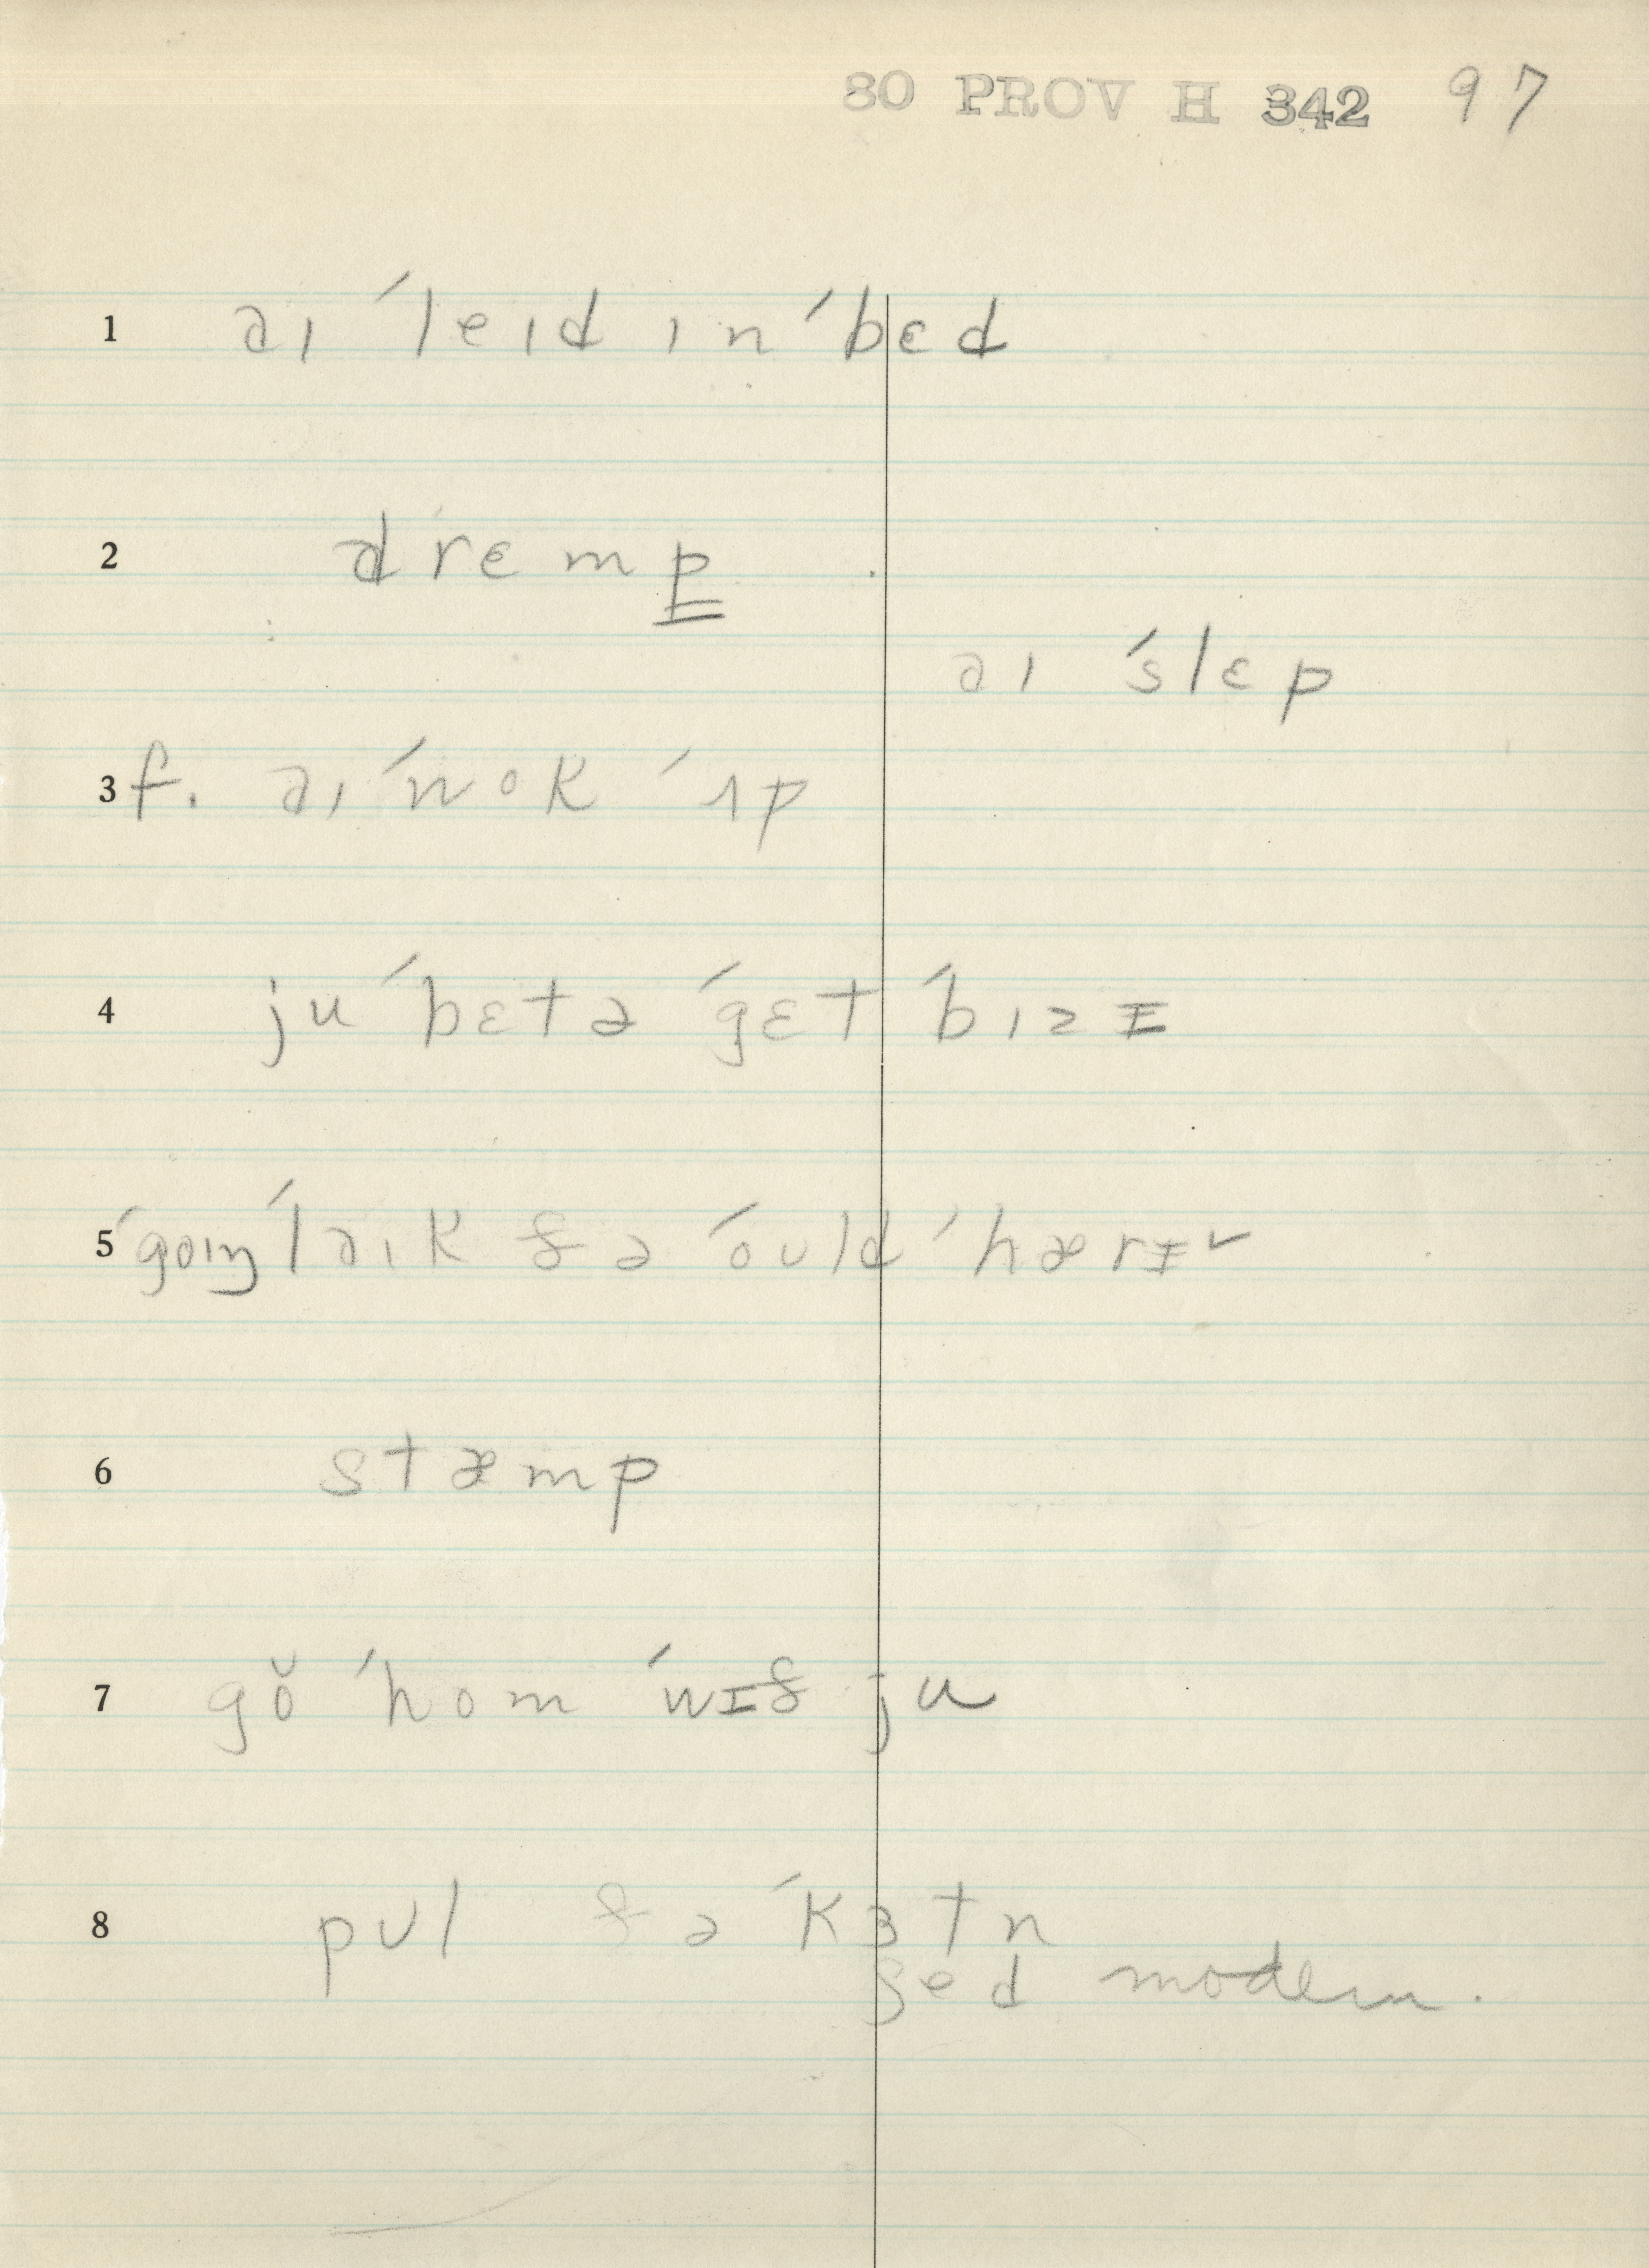 80 PROV H 342 97
1 əɪ ˈleɪd ɪn ˈbɛd
2 drɛmp
əɪ ˈslɛp
3 f. əɪ ˈwok ˈʌp
4 ju ˈbɛtə ˈgɛt ˈbɪzɪ
5 ˈgoɪŋ ˈləɪk ðə ˈoʊld ˈhærɪ ✓
6 stæmp
7 gŏ ˈhom ˈwɪð ju
8 pʊl ðə ˈkɜtn
ʃed modern.